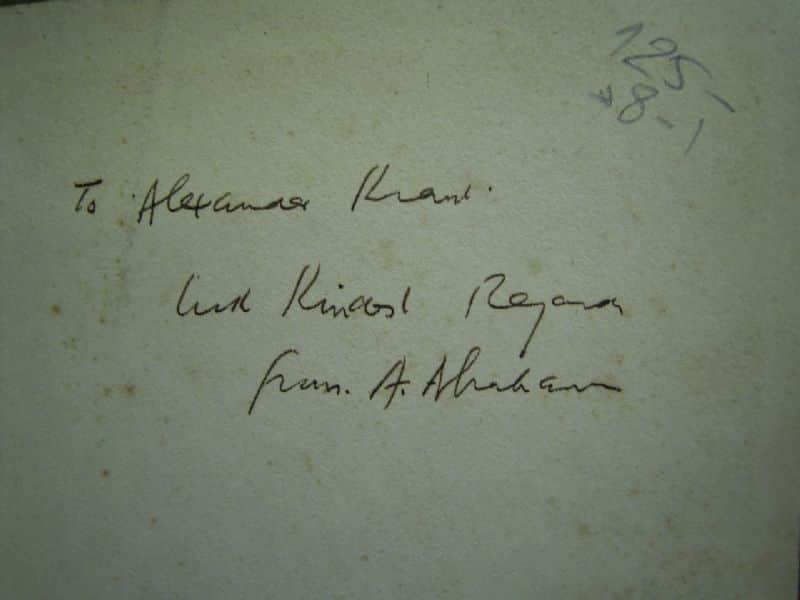 125-
*8-1
To Alexander
With Kindest Regards
from. A. Abraham